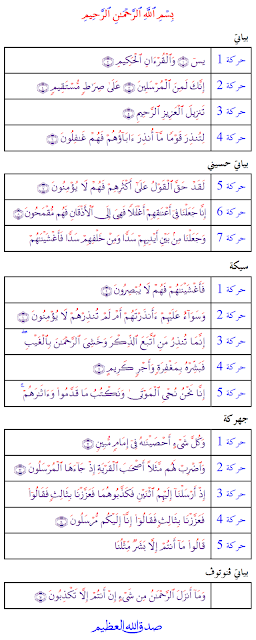 بِسْمِ ٱللَّهِ ٱلرَّحْمَٰنِ ٱلرَّحِيمِ
بياتي
حركة 1 يسٓ ۝ وَٱلْقُرْءَانِ ٱلْحَكِيمِ ۝
حركة 2 إِنَّكَ لَمِنَ ٱلْمُرْسَلِينَ ۝ عَلَىٰ صِرَٰطٍ مُّسْتَقِيمٍ ۝
حركة 3 تَنزِيلَ ٱلْعَزِيزِ ٱلرَّحِيمِ ۝
حركة 4 لِتُنذِرَ قَوْمًا مَّآ أُنذِرَ ءَابَآؤُهُمْ فَهُمْ غَٰفِلُونَ ۝
بياتي حسيني
حركة 5 لَقَدْ حَقَّ ٱلْقَوْلُ عَلَىٰٓ أَكْثَرِهِمْ فَهُمْ لَا يُؤْمِنُونَ ۝
حركة 6 إِنَّا جَعَلْنَا فِىٓ أَعْنَٰقِهِمْ أَغْلَٰلًا فَهِىَ إِلَى ٱلْأَذْقَانِ فَهُم مُّقْمَحُونَ ۝
حركة 7 وَجَعَلْنَا مِنۢ بَيْنِ أَيْدِيهِمْ سَدًّا وَمِنْ خَلْفِهِمْ سَدًّا فَأَغْشَيْنَٰهُمْ
سيكة
حركة 1 فَأَغْشَيْنَٰهُمْ فَهُمْ لَا يُبْصِرُونَ ۝
حركة 2 وَسَوَآءٌ عَلَيْهِمْ ءَأَنذَرْتَهُمْ أَمْ لَمْ تُنذِرْهُمْ لَا يُؤْمِنُونَ ۝
حركة 3 إِنَّمَا تُنذِرُ مَنِ ٱتَّبَعَ ٱلذِّكْرَ وَخَشِىَ ٱلرَّحْمَٰنَ بِٱلْغَيْبِ ۖ
حركة 4 فَبَشِّرْهُ بِمَغْفِرَةٍ وَأَجْرٍ كَرِيمٍ ۝
حركة 5 إِنَّا نَحْنُ نُحْىِ ٱلْمَوْتَىٰ وَنَكْتُبُ مَا قَدَّمُوا۟ وَءَاثَٰرَهُمْ ۚ
جهركة
حركة 1 وَكُلَّ شَىْءٍ أَحْصَيْنَٰهُ فِىٓ إِمَامٍ مُّبِينٍ ۝
حركة 2 وَٱضْرِبْ لَهُم مَّثَلًا أَصْحَٰبَ ٱلْقَرْيَةِ إِذْ جَآءَهَا ٱلْمُرْسَلُونَ ۝
حركة 3 إِذْ أَرْسَلْنَآ إِلَيْهِمُ ٱثْنَيْنِ فَكَذَّبُوهُمَا فَعَزَّزْنَا بِثَالِثٍ فَقَالُوٓا۟
حركة 4 فَعَزَّزْنَا بِثَالِثٍ فَقَالُوٓا۟ إِنَّآ إِلَيْكُم مُّرْسَلُونَ ۝
حركة 5 قَالُوا۟ مَآ أَنتُمْ إِلَّا بَشَرٌ مِّثْلُنَا
بياتي ڤنوتوڤ
وَمَآ أَنزَلَ ٱلرَّحْمَٰنُ مِن شَىْءٍ إِنْ أَنتُمْ إِلَّا تَكْذِبُونَ ۝
صدق الله العظيم